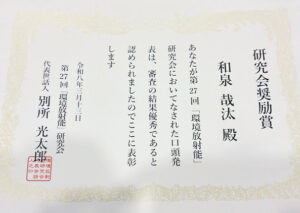 研究会奨励賞
和泉 哲汰 殿
あなたが第27回「環境放射能」
研究会においてなされた口頭発
表は、審査の結果優秀であると
認められましたのでここに表彰
します
令和八年三月十三日
第27回「環境放射能」研究会
代表世話人 別所 光太郎